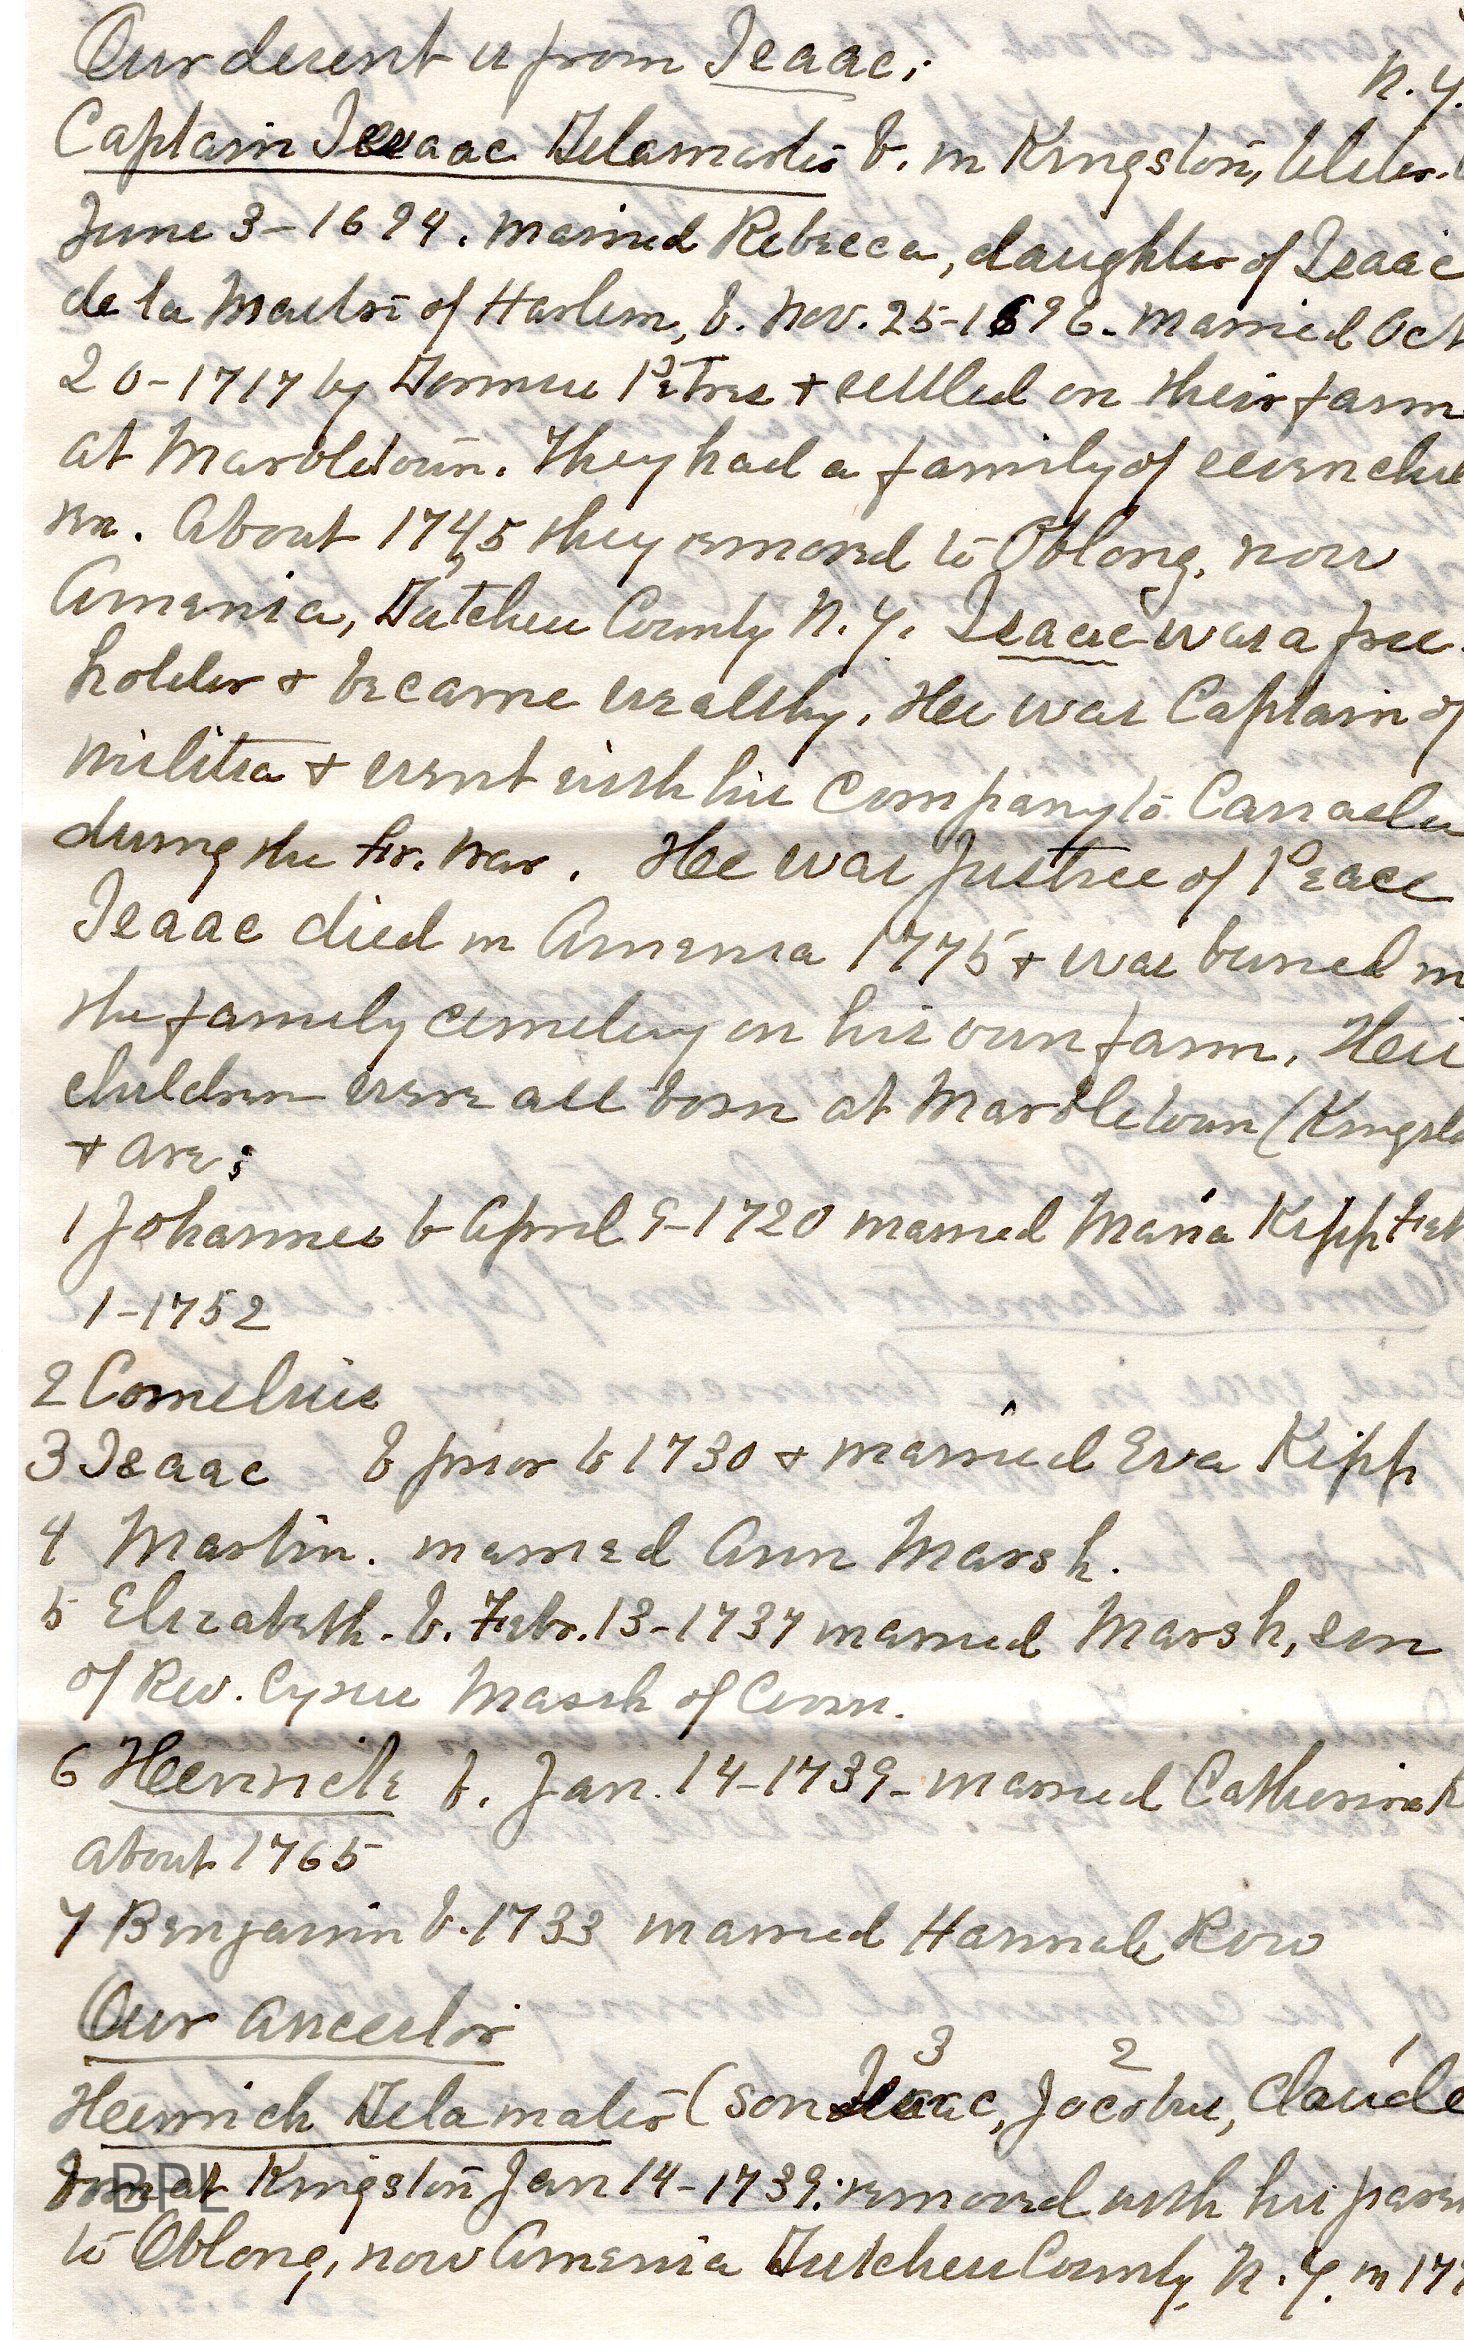 Our descent is from Isaac;
N.Y.
Captain Isaac Delamater b. in Kingston, Ulster
June 3-1694. married Rebecca, daughter of Isaac
de la Maitre of Harlem, b. Nov. 25-1696. married Oct
20-1717 by Domine Petrus + settled on their farm
at Marbletown. They had a family of seven child
ren. About 1745 they removed to Oblong, now
Amenia, Dutchess County N.Y. Isaac was a free
holder + became wealthy. He was Captain of
militia + went with his company to Canada
during the Fr. War. He was Justice of Peace
Isaac died in Amenia 1775 + was buried in
the family cemetery on his own farm. His
children were all born at Marbletown (Kingsto
+ are;
1 Johannes b April 9-1720 married Maria Kipp Feb
1-1752
2 Cornelius
3 Isaac b prior to 1730 + married Eva Kipp
4 Martin. married Ann Marsh.
5 Elizabeth. b. Febr. 13-1737 married Marsh, son
of Rev. Cyrus Marsh of Conn.
6 Heinrich b. Jan. 14-1739- married Catherine
about 1765
7 Benjamin b. 1733 married Hannah Row
Our ancestor
3 2 1
Heinrich Delamater (son Isaac, Jacobus, Claude
born at Kingston Jan 14-1739; removed with his paren
BPL
to Oblong, now Amenia Dutchess County, N.Y. in 17